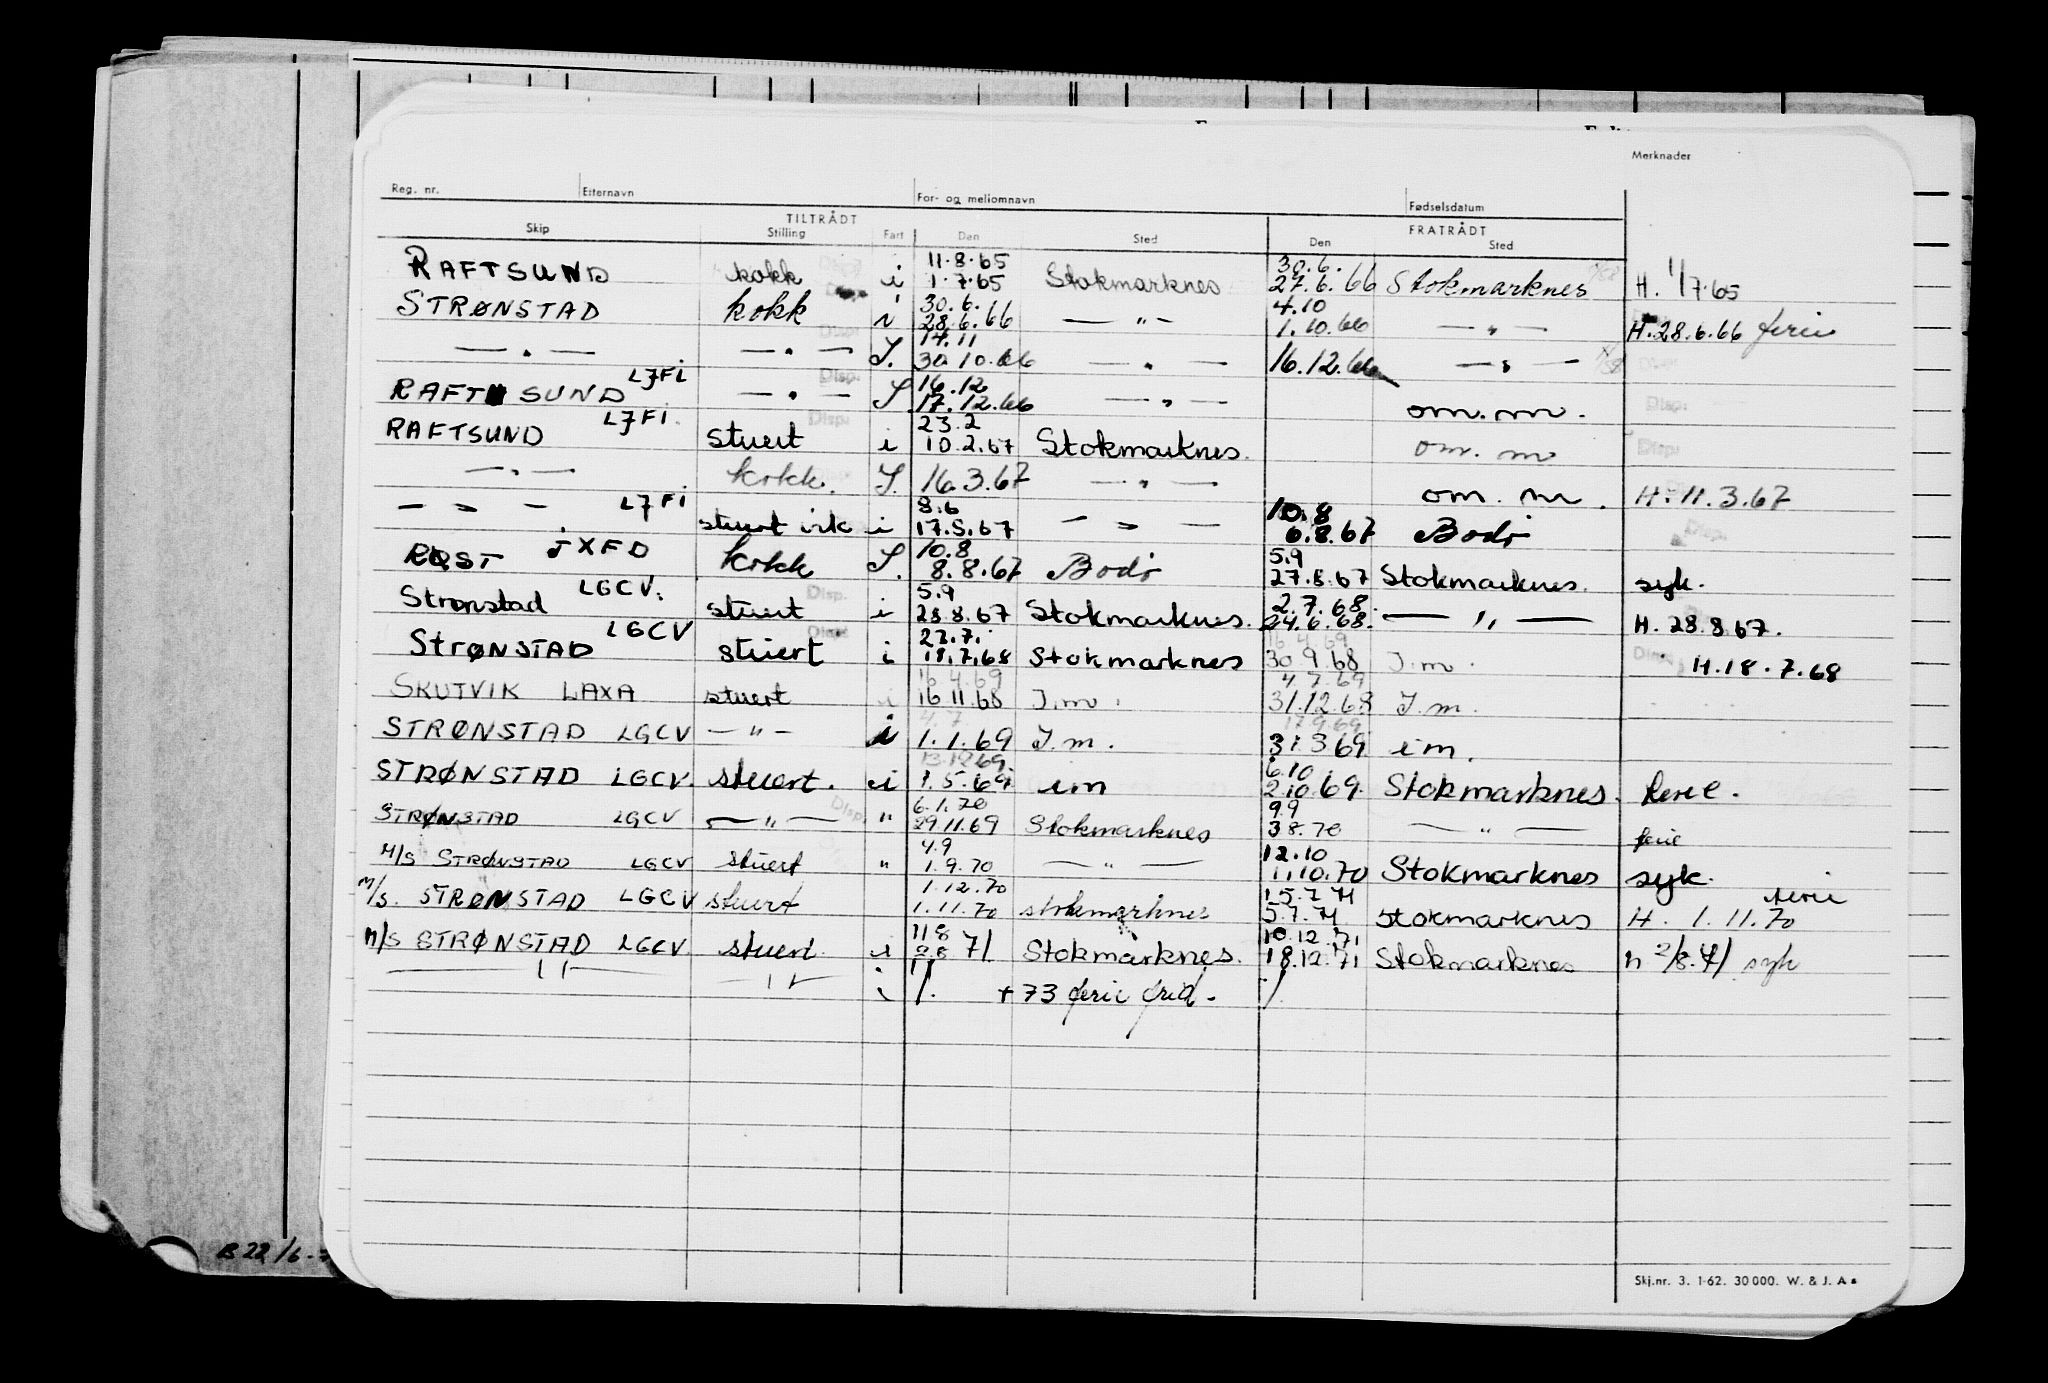 Merknader
Reg. nr. Etternavn For- og mellomnavn Fødselsdatum
TILTRÅDT FRATRÅDT
Skip Stilling Fart Den Sted Den Sted
11.8.65 30.6.
RAFTSUND kokk i 1.7.65 Stokmarknes 27.6.66 Stokmarknes H. 1/7.65
30.6. 4.10
STRØNSTAD kokk i 28.6.66 — " — 1.10.66 — " — H. 28.6.66 ferie
14.11
— " — — " — S. 30.10.66 — " — 16.12.66 — " —
L7FI 16.12
RAFTSUND — " — S 17.12.66 — " — om. m.
L7FI. 23.2
RAFTSUND stuert i 10.2.67 Stokmarknes. om. m
— " — kokk. S. 16.3.67 — " — om. m. H. 11.3.67
L7FI 8.6 10.8
— " — stuert vik i 17.5.67 — " — 6.8.67 Bodø
JXFD 10.8 5.9
RØST kokk S. 8.8.67 Bodø 27.8.67 Stokmarknes. syk.
LGCV. 5.9 2.7.68.
Strønstad stuert i 28.8.67 Stokmarknes. 24.6.68. — " — H. 28.8.67.
LGCV 27.7. 16.4.69
STRØNSTAD stuert i 18.7.68 Stokmarknes 30.9.68 I.m. H.18.7.68
16.4.69 4.7.69
SKUTVIK LAXA stuert i 16.11.68 I.m. 31.12.68 I.m.
4.7. 17.9.69
STRØNSTAD LGCV — " — i 1.1.69 I.m. 31.3 69 i m.
13.12.69 6.10
STRØNSTAD LGCV. stuert. i 1.5.69 i m 2.10.69. Stokmarknes. ferie.
6.1.70 9.9
STRØNSTAD LGCV — " — " 29.11.69 Stokmarknes 3 8.70 — " — ferie
4.9 12.10
M/S STRØNSTAD LGCV stuert " 1.9.70 — " — 1.10.70 Stokmarknes syk.
1.12.70 15.7.71 ferie
M/S. STRØNSTAD LGCV stuert 1.11.70 stokmarknes 5.7.71 Stokmarknes H. 1.11.70
11.8 10.12.71
M/S STRØNSTAD LGCV. stuert. i 2.8 71 Stokmarknes. 18.12.71 Stokmarknes h 2/8.71 syk
— " — — " — i 1/. + 73 ferie frid. 1/.
B 22/6-
Skj.nr. 3. 1-62. 30 000. W. & J. A s